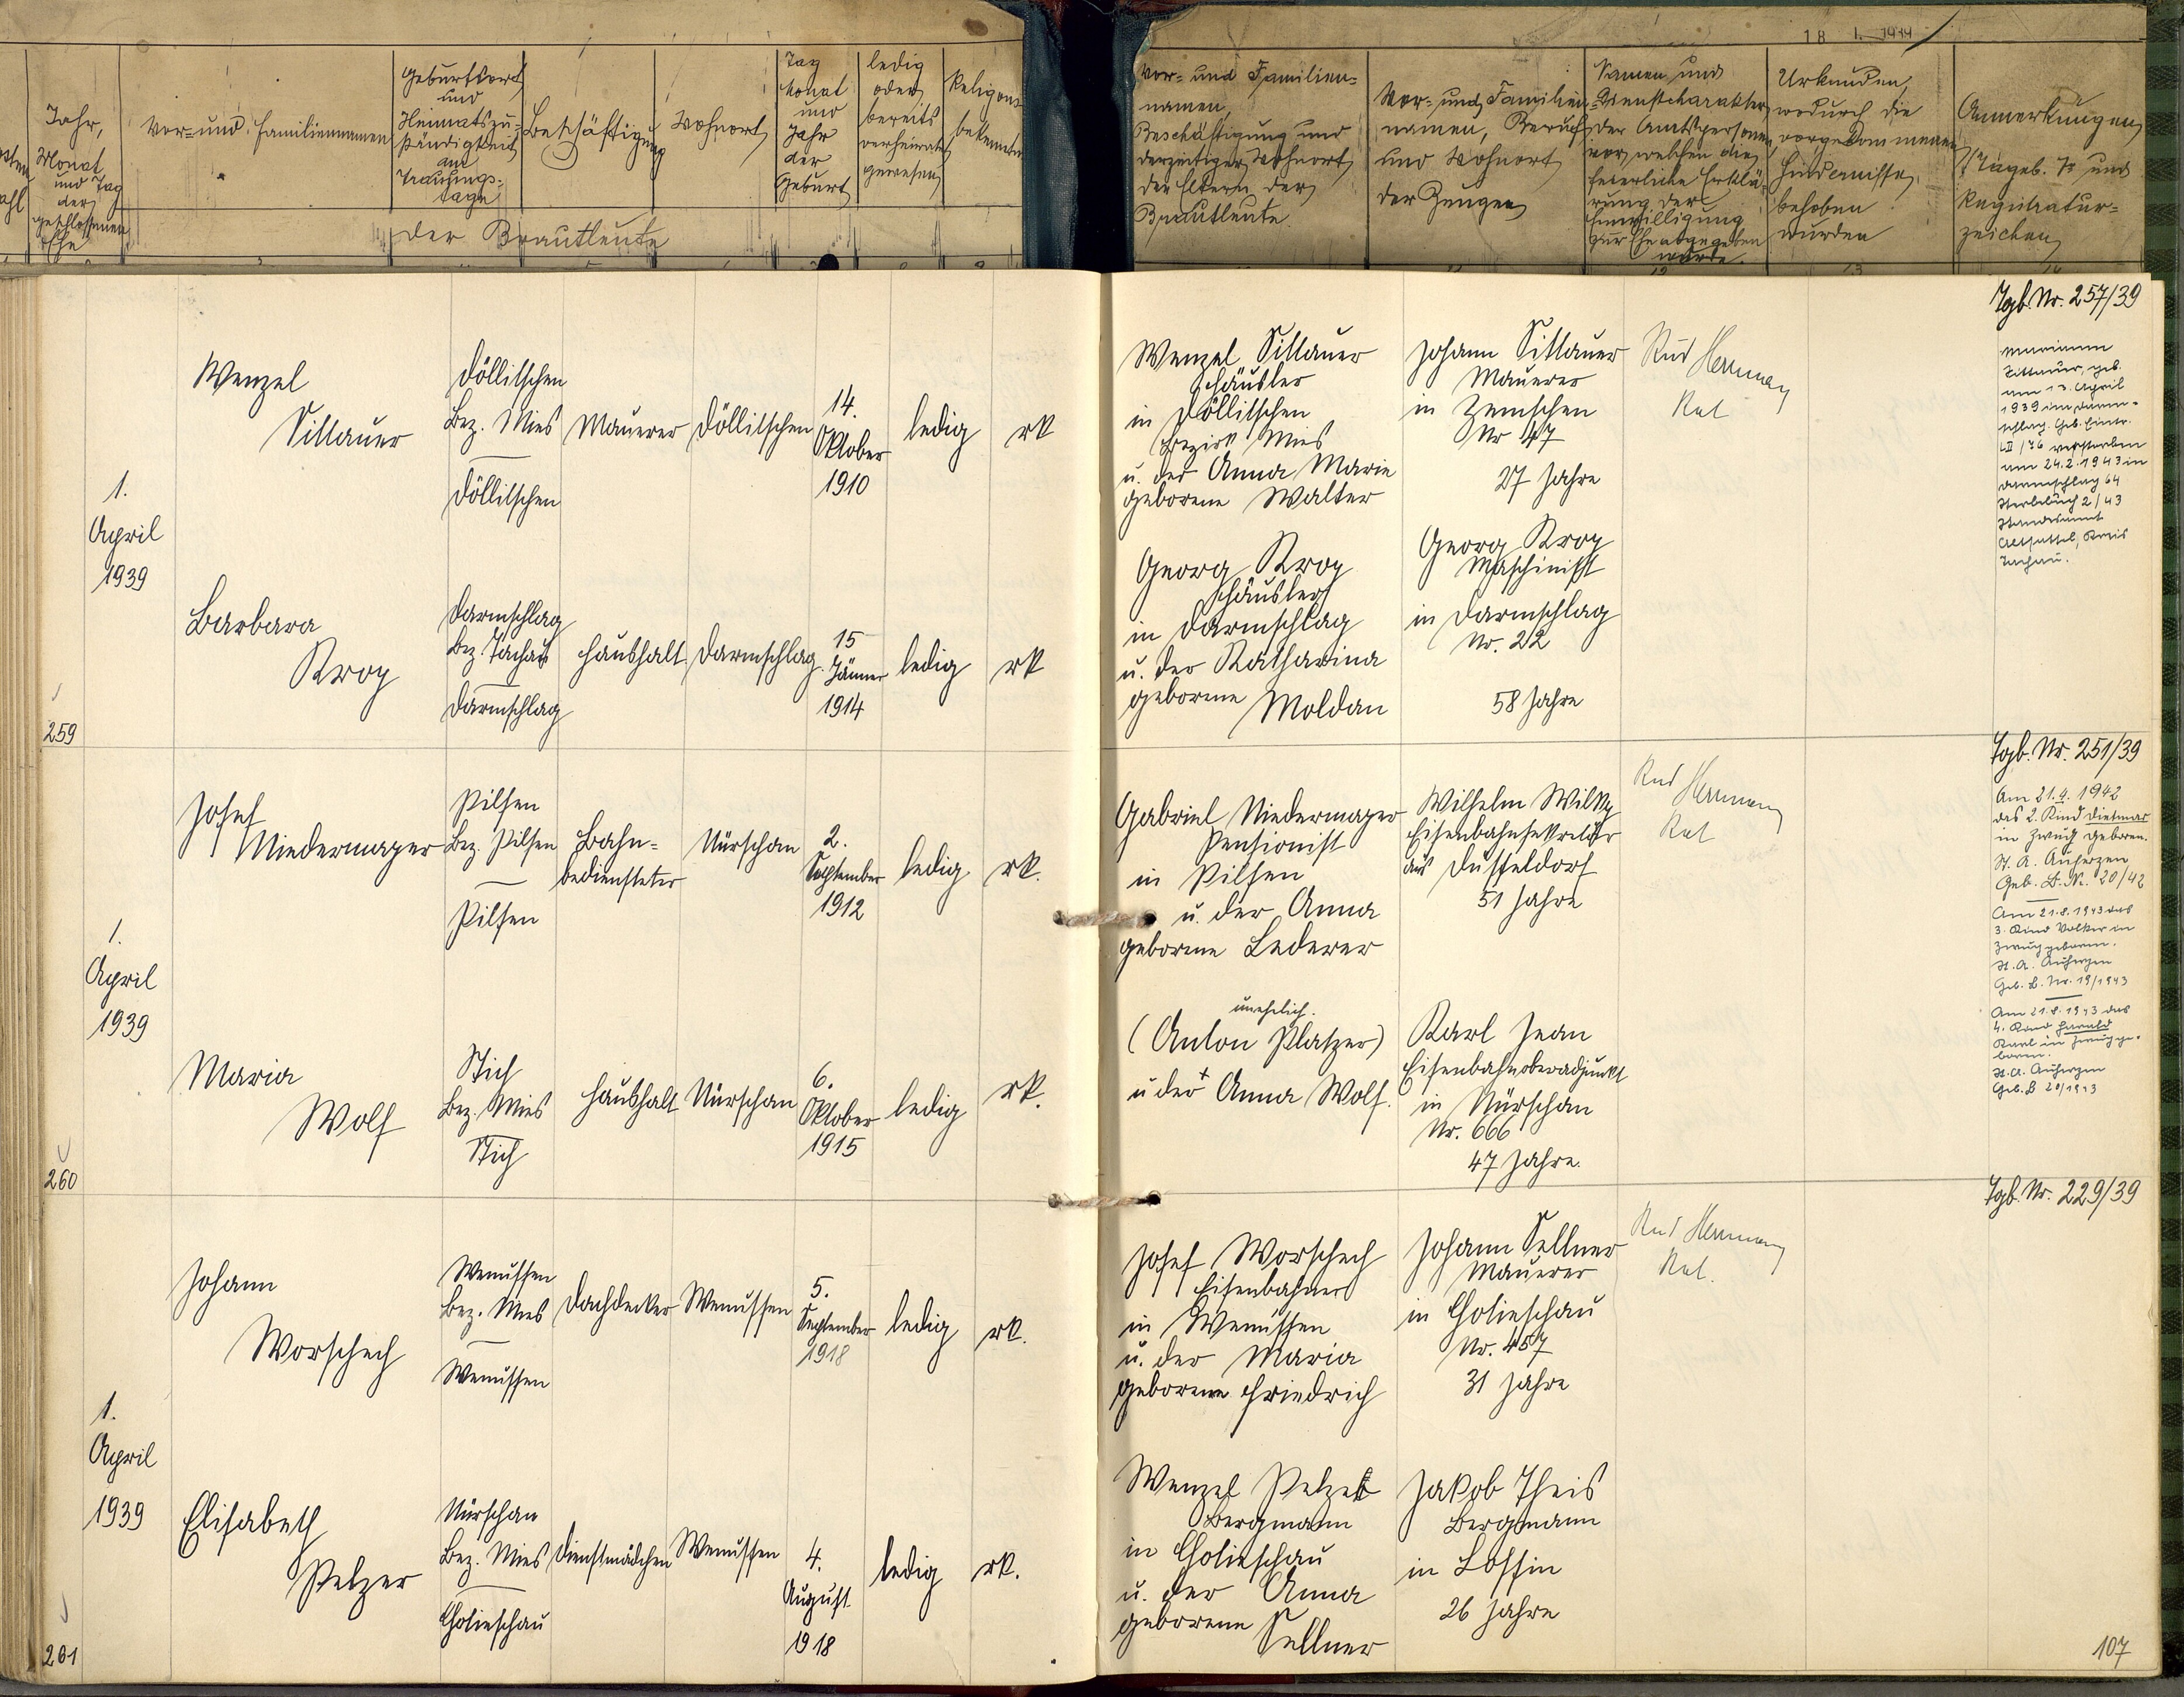 18 1. 1939
Jahr,
Monat
und Tag
der
geschlossenen
Ehe
Vor- und Familiennamen
Geburtsort
und
Heimatszu-
ständigkeit
am
Trauungs-
tage
Beschäftigung
Wohnort
Tag
Monat
und
Jahr
der
Geburt
ledig
oder
bereits
verheiratet
gewesen
Religions
bekenntnis
der Brautleute
Vor- und Familien-
namen,
Beschäftigung und
derzeitiger Wohnort
der Eltern der
Brautleute
Vor- und Familien-
namen, Beruf
und Wohnort
der Zeugen
Namen und
Dienstcharakter
der Amtspersonen
vor welchen die
feierliche Erklä-
rung der
Einwilligung
zur Ehe abgegeben
wurde.
Urkunden,
wodurch die
vorgekommenen
Hindernisse,
behoben
wurden
Anmerkungen
(Tageb. Nr und
Registratur-
zeichen
259
1.
April
1939
Wenzel
Sittauer
Döllitschen
Bez. Mies
Döllitschen
Mauerer
Döllitschen
14.
Oktober
1910
ledig
rk
Wenzel Sittauer
Häusler
in Döllitschen
Bezirk Mies
u. der Anna Marie
geborene Walter
Johann Sittauer
Mauerer
in Zemschen
Nr 47
27 Jahre
Rud Herrmann
Rat
Tgb. Nr. 257/39
Marianne
Sittauer, geb.
am 13. April
1939 in Darm-
schlag. Geb. Eintr.
verstorben
am 24.2.1943 in
Darmschlag 64
Sterbebuch 2/43
Standesamt
Altsattel, Kreis
Tachau.
Barbara
Krog
Darmschlag
Bez Tachau
Darmschlag
Haushalt
Darmschlag
15
Jänner
1914
ledig
rk
Georg Krog
Häusler
in Darmschlag
u. der Katharina
geborene Moldan
Georg Krog
Maschinist
in Darmschlag
Nr. 22
58 Jahre
260
1.
April
1939
Josef
Niedermayer
Pilsen
Bez. Pilsen
Pilsen
Bahn-
bediensteter
Nürschan
2.
September
1912
ledig
rk.
Gabriel Niedermayer
Pensionist
in Pilsen
u. der Anna
geborene Lederer
Wilhelm
Eisenbahnsekretär
aus Dusseldorf
51 Jahre
Rud Herrmann
Rat
Tgb. Nr. 251/39
Am 21.4. 1942
das 2. Kind Dietmar
in Zwug geboren.
St. A. Auherzen
Geb. B. Nr. 20/42
Am 21.8.1943 das
3. Kind Volker in
Zwug geboren.
St. A. Auherzen
Geb. B. Nr. 19/1943
Am 21.8.1943 das
4. Kind Harald
Karl in Zwug ge-
boren.
St. A. Auherzen
Geb. B 20/1943
Maria
Wolf
Stich
Bez. Mies
Stich
Haushalt
Nürschan
6.
Oktober
1915
ledig
rk.
unehelich.
(Anton Platzer)
u der + Anna Wolf.
Karl Jean
Eisenbahnoberadjunkt
in Nürschan
Nr. 666
47 Jahre.
261
1.
April
1939
Johann
Worschech
Wenussen
Bez. Mies
Wenussen
Dachdecker
Wenussen
5.
September
1918
ledig
rk.
Josef Worschech
Eisenbahner
in Wenussen
u. der Maria
geborene Friedrich
Johann Sellner
Mauerer
in Chotieschau
Nr. 457
31 Jahre
Rud Herrmann
Rat.
Tgb. Nr. 229/39
Elisabeth
Pelzer
Nürschan
Bez. Mies
Chotieschau
Dienstmädchen
Wenussen
4.
August
1918
ledig
rk.
Wenzel Pelzer
Bergmann
in Chotieschau
u. der Anna
geborene Sellner
Jakob Theis
Bergmann
in Lossin
26 Jahre
107